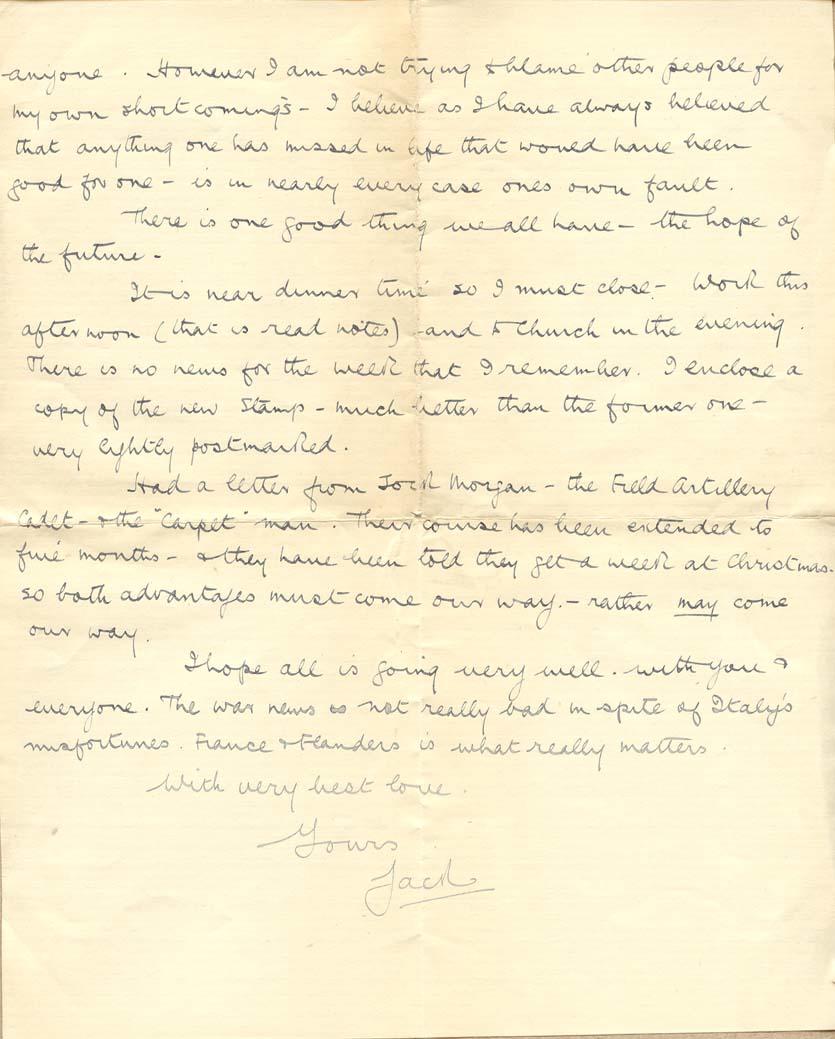 anyone. However I am not trying to blame other people for
my own shortcomings - I believe as I have always believed
that anything one has missed in life that would have been
good for one - is in nearly every case ones own fault.
There is one good thing we all have - the hope of
the future -
It is near dinner time so I must close - Work this
afternoon (that is read notes) - and to Church in the evening.
There is no news for the week that I remember. I enclose a
copy of the new Stamp - much better than the former one -
very lightly postmarked.
Had a letter from Jock Morgan - the Field Artillery
Cadet - & the "Carpet" man. Their course has been extended to
five months - & they have been told they get a week at Christmas -
so both advantages must come our way. - rather may come
our way.
I hope all is going very well. with you &
everyone. The war news is not really bad in spite of Italy's
misfortunes. France & Flanders is what really matters.
With very best love.
Yours
Jack